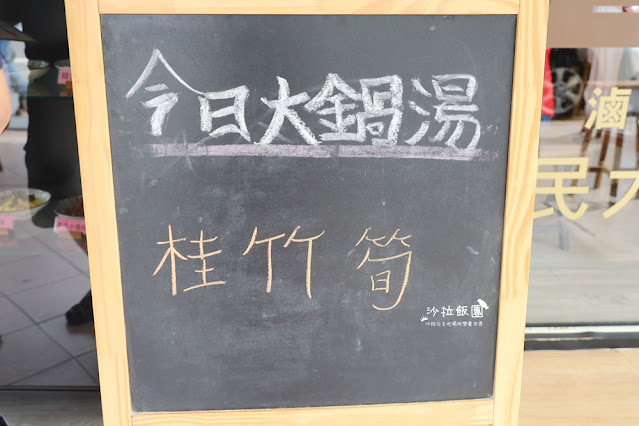 今日大鍋湯
桂竹筍
沙拉飯團
滷
民大